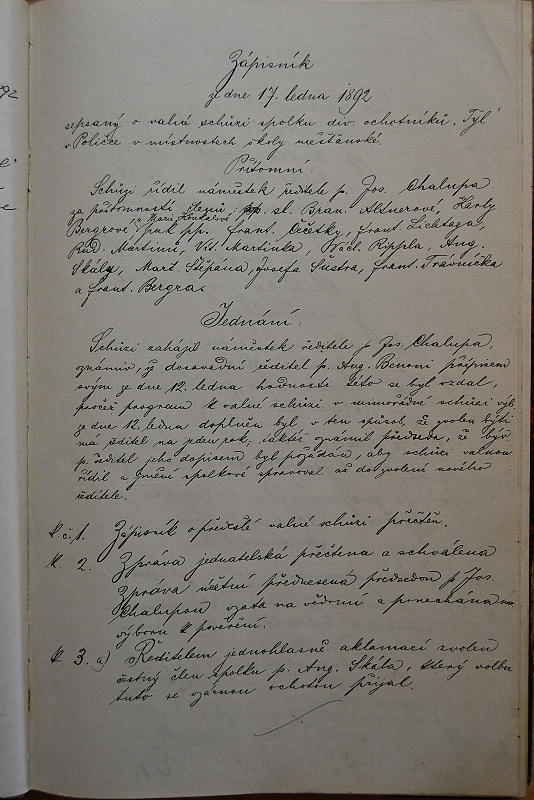 Zápisník
ze dne 17. ledna 1892
sepsaný o valné schůzi spolku div. ochotníků „Tyl“
v Poličce v místnostech školy měšťanské.
Přítomní:
Schůzi řídil náměstek ředitele p. Jos. Chalupa
za přítomnosti slečen: sl. Bran. Aldnerové, Harly
a Marie Koukalové
Bergrové pak pp. Frant. Čečetky, Frant. Lichtága,
Rud. Martinů, Vít. Martinka, Václ. Rippla, Aug.
Skály, Mart. Štěpána, Josefa Šustra, Frant. Trávníčka
a Frant. Bergra.
Jednání:
Schůzi zahájil náměstek ředitele p. Jos. Chalupa,
oznámiv, že dosavadní ředitel p. Aug. Benoni přípisem
svým ze dne 12. ledna hodnosti této se byl vzdal,
pročež program k valné schůzi v mimořádné schůzi výb.
ze dne 12. ledna doplněn byl v ten způsob, že zvolen býti
má ředitel na jeden rok, taktéž oznámil předseda, že býv.
p. ředitel jeho dopisem byl požádán, aby schůzi valnou
řídil a jmění spolkové spravoval až do zvolení nového
ředitele.
K č. 1. Zápisník o předešlé valné schůzi přečten.
K 2. Zpráva jednatelská přečtena a schválena
Zpráva účetní přednesená předsedou p. Jos.
Chalupou vzata na vědomí a ponechána
výboru k prověření.
K 3. a) Ředitelem jednohlasně aklamací zvolen
čestný člen spolku p. Aug. Skála, který volbu
tuto se vzácnou ochotou přijal.